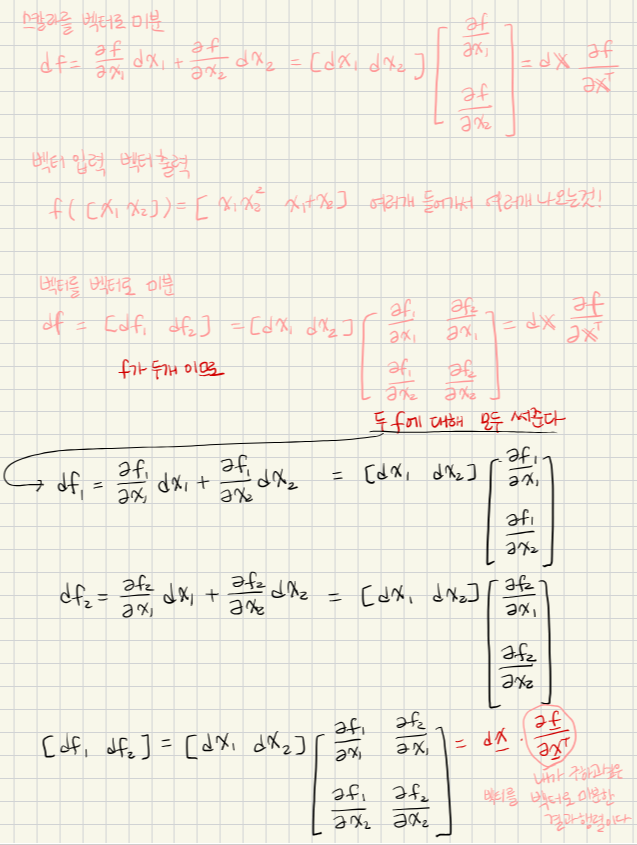 스칼라를 벡터로 미분
df = ∂f/∂x₁ dx₁ + ∂f/∂x₂ dx₂ = [dx₁ dx₂] [∂f/∂x₁ ; ∂f/∂x₂] = dx ∂f/∂xᵀ
벡터 입력 벡터 출력
f([x₁ x₂]) = [x₁x₂² x₁+x₂] 여러개 들어가서 여러개 나오는것!
벡터를 벡터로 미분
df = [df₁ df₂] = [dx₁ dx₂] [∂f₁/∂x₁ ∂f₂/∂x₁ ; ∂f₁/∂x₂ ∂f₂/∂x₂] = dx ∂f/∂xᵀ
f가 두개 이므로
두 f에 대해 모두 써준다
→ df₁ = ∂f₁/∂x₁ dx₁ + ∂f₁/∂x₂ dx₂ = [dx₁ dx₂] [∂f₁/∂x₁ ; ∂f₁/∂x₂]
df₂ = ∂f₂/∂x₁ dx₁ + ∂f₂/∂x₂ dx₂ = [dx₁ dx₂] [∂f₂/∂x₁ ; ∂f₂/∂x₂]
[df₁ df₂] = [dx₁ dx₂] [∂f₁/∂x₁ ∂f₂/∂x₁ ; ∂f₁/∂x₂ ∂f₂/∂x₂] = dx · ∂f/∂xᵀ
내가 구하고싶은
벡터를 벡터로 미분한
결과행렬이다